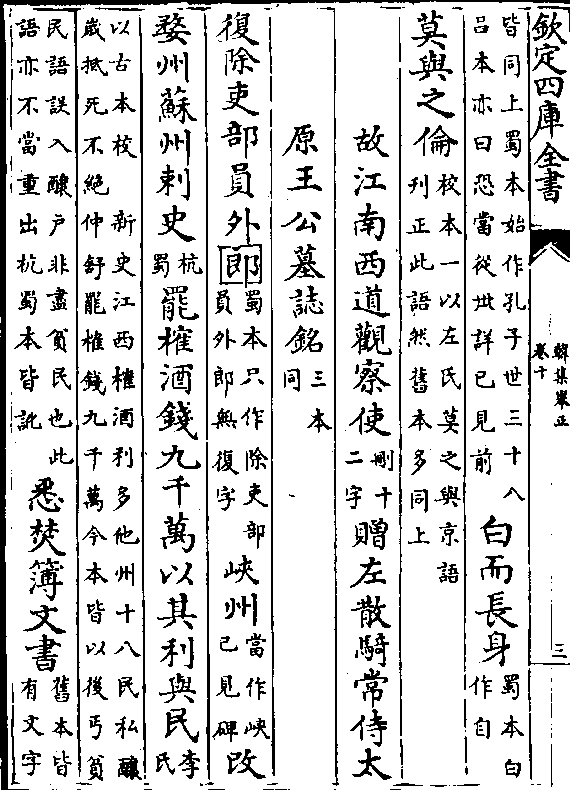 欽定四庫全書
韓集舉正
卷十
三
皆同上蜀本始作孔子世三十八
呂本亦曰恐當從丗詳已見前
白而長身
蜀本白
作自
莫與之倫
校本一以左氏莫之與京語
刊正此語然舊本多同上
故江南西道觀察使
刪十
二字
贈左散騎常侍太
原王公墓誌銘
三本
同
復除吏部員外郎
蜀本只作除吏部
員外郎無復字
峽州
當作峽
已見碑
改
婺州蘇州刺史
杭
蜀
罷榷酒錢九千萬以其利與民
李
民
以古本校 新史江西榷酒利多他州十八民私釀
歲抵死不絕仲舒罷榷錢九千萬今本皆以後丐貧
民語誤入釀戶非盡貧民也此
語亦不當重出杭蜀本皆訛
悉焚簿文書
舊本皆
有文字